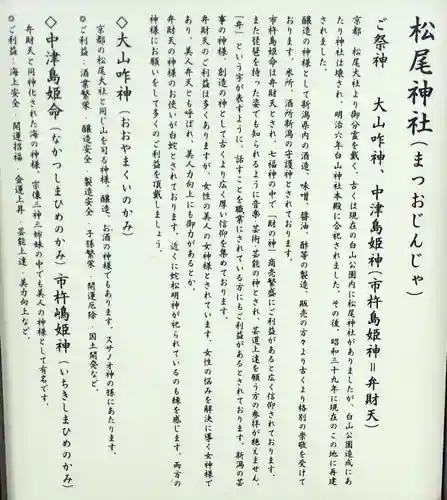 松尾神社(まつおじんじゃ)
ご祭神　大山咋神、中津島姫神(市杵島姫神＝弁財天)
京都　松尾大社より御分霊を戴く、古くは現在の白山公園内に松尾神社がありましたが、白山公園造成にあ
たり神社は壊され、明治六年白山神社本殿に合祀されました。その後、昭和三十九年に現在のこの地に再建
されました。
醸造の神様として新潟県内の酒造、味噌、醤油、酢等の製造、販売の方々より古くより格別の崇敬を受けて
おります。米所、酒所新潟の守護神とされております。
市杵島姫命は弁財天とされ、七福神の中で「財の神」商売繁盛にご利益があると広く信仰されております。
また琵琶を持った姿でも知られるように音楽、芸術、芸能の神とされ、芸道上達を願う方の参拝が絶えません。
「弁」という字が表すように、話すことを職業にされている方にもご利益があるとされております。新潟の芸
事の神様、創造の神として古くより広く厚い信仰を集めております。
弁財天のご利益は多くありますが、女性の美人の女神様とされています。女性の悩みを解決に導く女神様で
あり、美人弁天とも呼ばれ、美人力向上にも御力があるとか。
弁財天の神様のお使いが白蛇とされております。近くに蛇松明神が祀られているのも縁を感じます。両方の
神様にお願いをして多くのご利益を頂戴しましょう。
◇大山咋神(おおやまくいのかみ)
京都の松尾大社と同じ山を司る神様、醸造、お酒の神様でもあります。スサノオ神の孫にあたります。
◎ご利益：酒業繁栄　醸造安全　製造安全　子孫繁栄　開運厄除　国土開発など。
◇中津島姫命(なかつしまひめのかみ)市杵嶋姫神(いちきしまひめのかみ)
弁財天と同神化された海の神様。宗像三神三姉妹の中でも美人の神様として有名です。
◎ご利益：海上安全　開運招福　金運上昇　芸能上達　美力向上など。